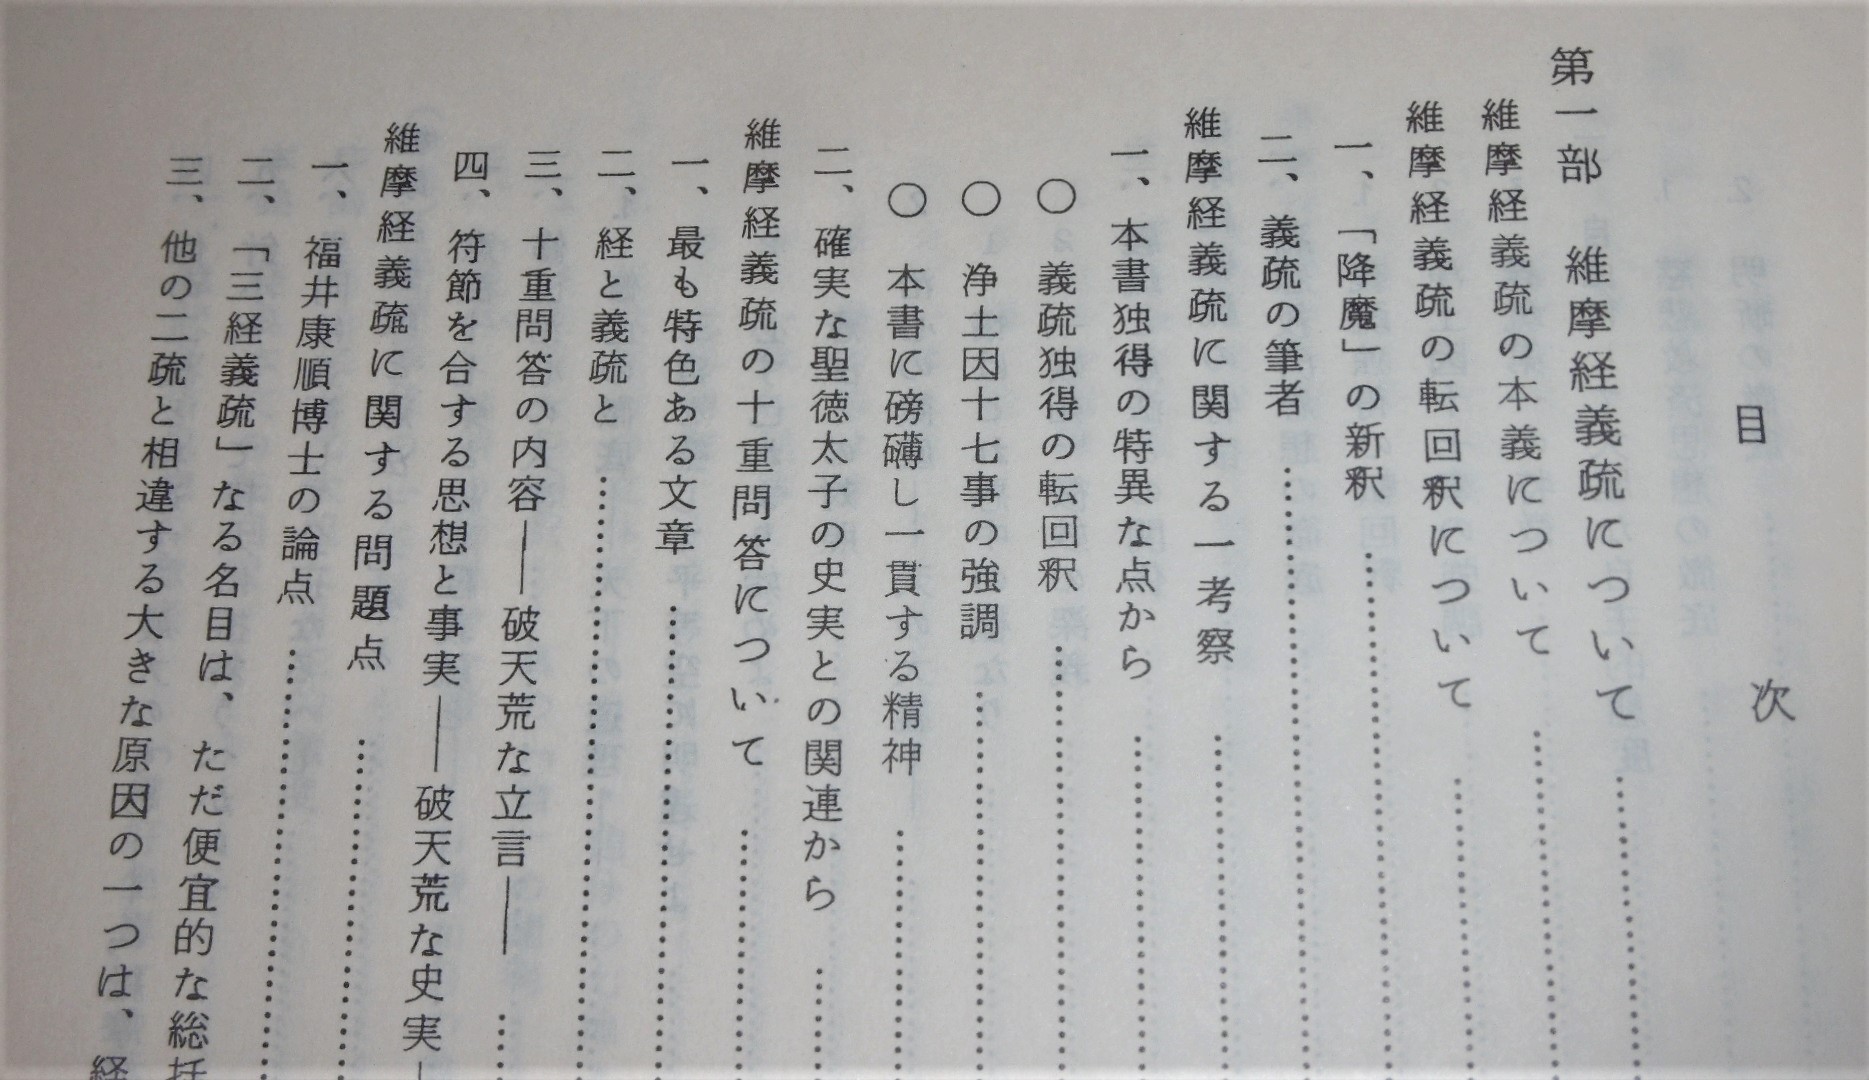 目　次
第一部　維摩経義疏について
維摩経義疏の本義について
維摩経義疏の転回釈について
一、「降魔」の新釈
二、義疏の筆者
維摩経義疏に関する一考察
一、本書独得の特異な点から
〇　義疏独得の転回釈
〇　浄土因十七事の強調
〇　本書に磅礴し一貫する精神
二、確実な聖徳太子の史実との関連から
維摩経義疏の十重問答について
一、最も特色ある文章
二、経と義疏と
三、十重問答の内容――破天荒な立言――
四、符節を合する思想と事実――破天荒な史実―
維摩経義疏に関する問題点
一、福井康順博士の論点
二、「三経義疏」なる名目は、ただ便宜的な総括
三、他の二疏と相違する大きな原因の一つは、経